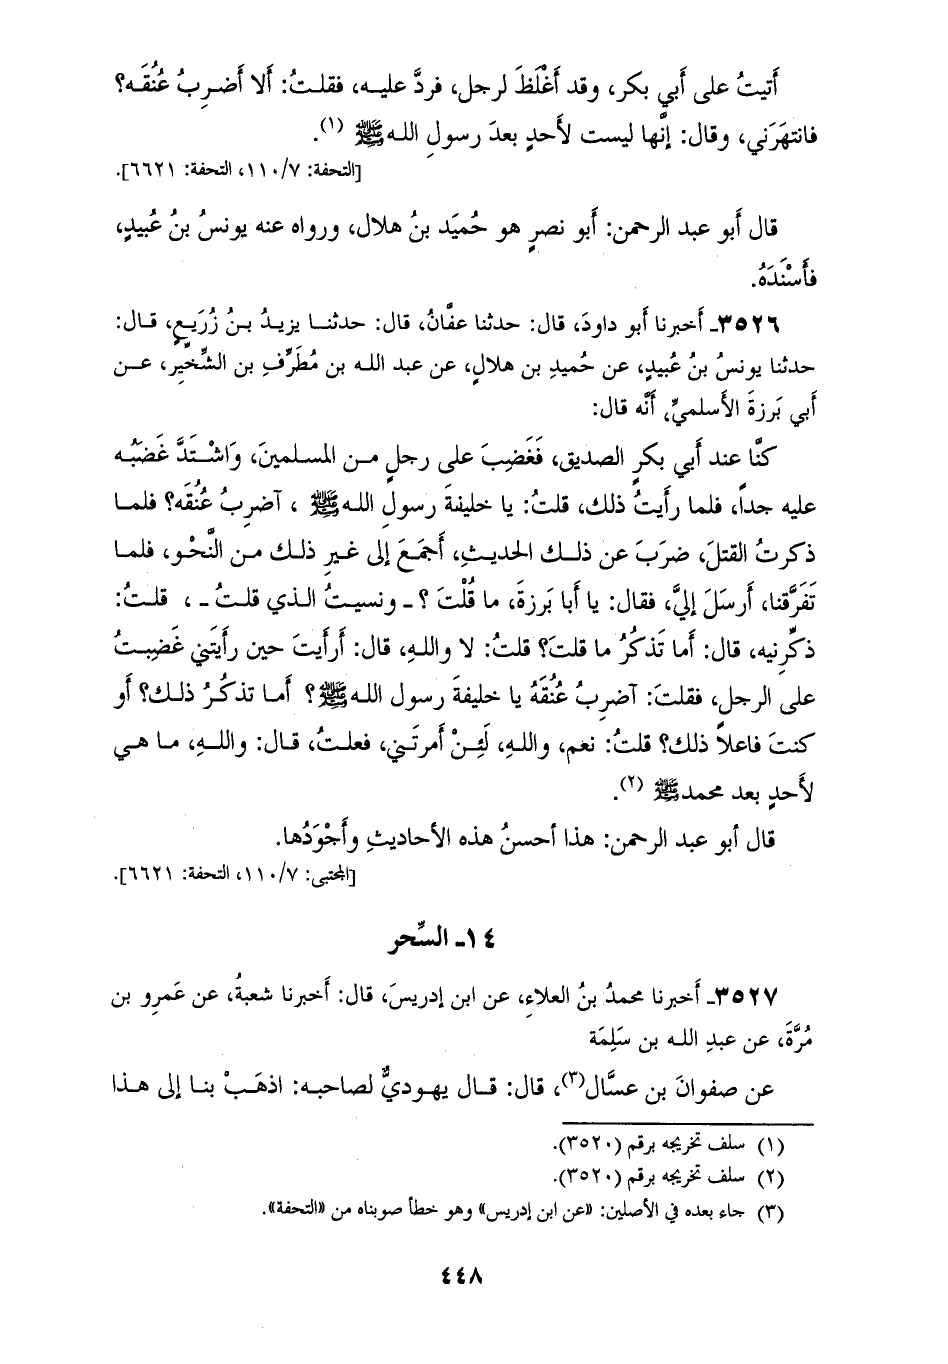 أَتيتُ على أَبي بكر، وقد أَغْلَظَ لرجل، فردَّ عليه، فقلتُ: أَلا أَضرِبُ عُنُقَه؟
فانتهَرَني، وقال: إنَّها ليست لأَحدٍ بعدَ رسولِ اللهﷺ (١).
[التحفة: ١١٠/٧، التحفة: ٦٦٢١].
قال أَبو عبد الرحمن: أَبو نصرٍ هو حُمَيَد بنُ هلال، ورواه عنه يونسُ بنُ عُبيدٍ،
فأَسْنَدَهُ.
٣٥٢٦ـ أَخبرنا أَبو داودَ، قال: حدثنا عفَّانُ، قال: حدثنا يزيدُ بنُ زُرَيعٍ، قال:
حدثنا يونسُ بنُ عُبيدٍ، عن حُميدِ بن هلالٍ، عن عبد الله بن مُطَرِّفِ بن الشِّخِّير، عن
أَبي بَرزةَ الأَسلميِّ، أَنَّه قال:
كنَّا عند أَبي بكرٍ الصديق، فَغَضِبَ على رجلٍ من المسلمين، وَاشْتَدَّ غَضَبُه
عليه جداً، فلما رأَيتُ ذلك، قلتُ: يا خليفةَ رسولِ اللهﷺ ، آضرِبُ عُنُقَه؟ فلما
ذكرتُ القتلَ، ضرَبَ عن ذلك الحديثِ، أَجمَعَ إلى غيرِ ذلك من النَّحْوِ، فلما
تَفَرَّقنا، أَرسَلَ إليَّ، فقال: يا أَبا بَرزةَ، ما قُلْتَ ؟ ـ ونسيتُ الذي قلتُ ـ ، قلتُ:
ذكِّرنيه، قال: أَما تَذكُرُ ما قلتَ؟ قلتُ: لا واللهِ، قال: أَرأَيتَ حين رأَيتَني غَضِبتُ
على الرجل، فقلتَ: آضرِبُ عُنُقَهُ يا خليفةَ رسول اللهﷺ؟ أَما تذكُرُ ذلك؟ أَو
كنتَ فاعلاً ذلك؟ قلتُ: نعم، واللهِ، لَئِنْ أَمرتَني، فعلتُ، قال: واللهِ، ما هي
لأَحدٍ بعد محمدﷺ (٢).
قال أَبو عبد الرحمن: هذا أَحسنُ هذه الأَحاديثِ وأَجْوَدُها.
[المجتبى: ١١٠/٧، التحفة: ٦٦٢١].
١٤ـ السِّحر
٣٥٢٧ـ أَخبرنا محمدُ بنُ العلاءِ، عن ابن إدريسَ، قال: أَخبرنا شعبةُ، عن عَمرِو بن
مُرَّةَ، عن عبدِ الله بن سَلِمَة
عن صفوانَ بن عسَّال(٣)، قال: قال يهوديٌّ لصاحبه: اذهَبْ بنا إلى هذا
(١) سلف تخريجه برقم (٣٥٢٠).
(٢) سلف تخريجه برقم (٣٥٢٠).
(٣) جاء بعده في الأصلين: «عن ابن إدريس» وهو خطأ صوبناه من «التحفة».
٤٤٨